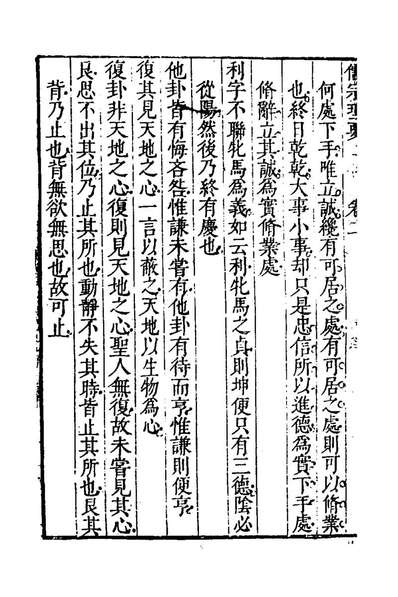 何處下手唯立誠纔有可居之處有可居之處則可以脩業
也終日乾乾大事小事却只是忠信所以進德爲實下手處
脩辭立其誠爲實脩業處
利字不聯牝馬爲義如云利牝馬之貞則坤便只有三德陰必
從陽然後乃終有慶也
他卦皆有悔吝咎惟謙未嘗有他卦有待而亨惟謙則便亨
復其見天地之心一言以蔽之天地以生物爲心
復卦非天地之心復則見天地之心聖人無復故未嘗見其心
艮思不出其位乃止其所也動靜不失其時皆止其所也艮其
背乃止也背無欲無思也故可止